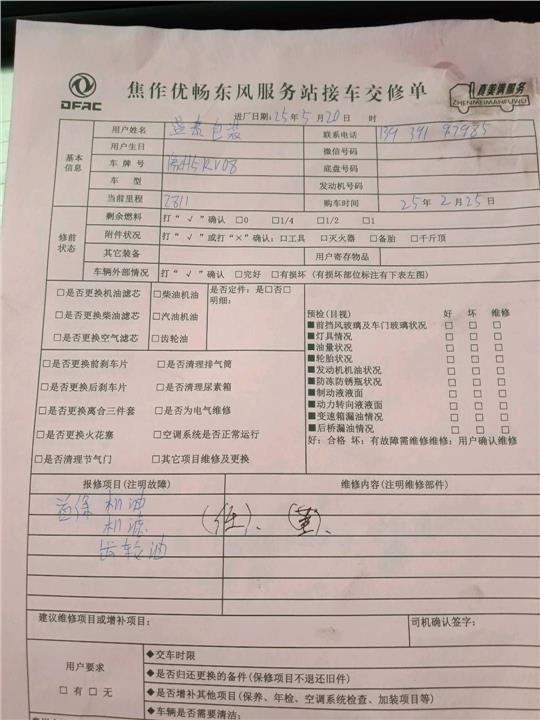 DFAC
焦作优畅东风服务站接车交修单
真美满服务
ZHENMEIMANFUWU
进厂日期：25年5月20日 时
基本信息
用户姓名 包装 联系电话
用户生日 微信号码
车牌号 底盘号码
车型 发动机号码
当前里程 2811 购车时间 25年2月25日
修前状态
剩余燃料 打“√”确认 □0 □1/4 □1/2 □1
附件状况 打“√”或打“×”确认：□工具 □灭火器 □备胎 □千斤顶
其它装备 用户寄存物品
车辆外部情况 打“√”确认 □完好 □有损坏（有损坏部位标注有下表左图）
□是否更换机油滤芯 □柴油机油 是否定件：是□否□
□是否更换柴油滤芯 □汽油机油 明细：
□是否更换空气滤芯 □齿轮油
□是否更换前刹车片 □是否清理排气筒
□是否更换后刹车片 □是否清理尿素箱
□是否更换离合三件套 □是否为电气维修
□是否更换火花塞 □空调系统是否正常运行
□是否清理节气门 □其它项目维修及更换
预检(目视) 好 坏 维修
■前挡风玻璃及车门玻璃状况 □ □ □
■灯具情况 □ □ □
■油量状况 □ □ □
■轮胎状况 □ □ □
■发动机机油状况 □ □ □
■防冻防锈瓶状况 □ □ □
■制动液液面 □ □ □
■动力转向液液面 □ □ □
■变速箱漏油情况 □ □ □
■后桥漏油情况 □ □ □
好：合格 坏：有故障需维修维修：用户确认维修
报修项目(注明故障) 维修内容(注明维修部件)
首保 机油
机滤
齿轮油
(任)、(董)、
建议维修项目或增补项目： 司机确认签字：
用户要求
□有□无
◆交车时限
◆是否归还更换的备件(保修项目不退还旧件)
◆是否增补其他项目(保养、年检、空调系统检查、加装项目等)
◆车辆是否需要清洁：